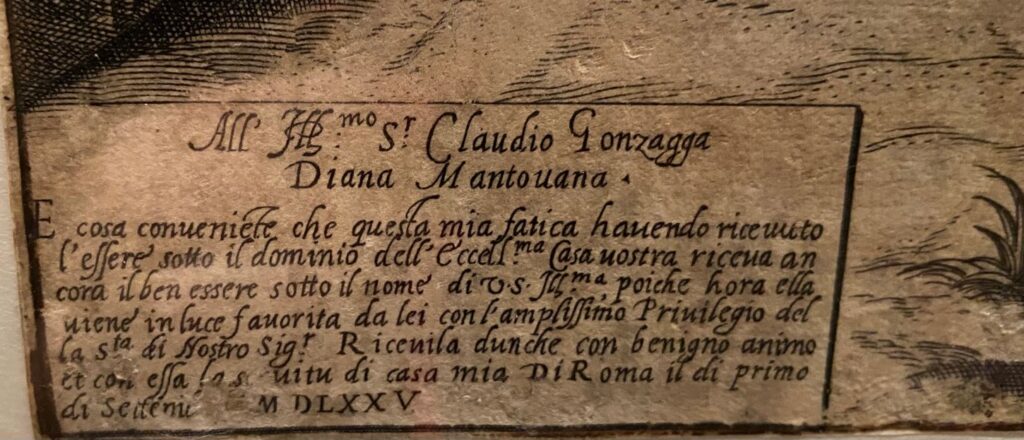 All' Ill.mo S.r Claudio Gonzagga
Diana Mantouana .
E cosa conueniēte che questa mia fatica hauendo riceuuto
l'essere sotto il dominio dell'Eccell.ma Casa uostra riceua an
cora il ben essere sotto il nome di V.S. Ill.ma, poiche hora ella
uiene in luce fauorita da lei con l'amplissimo Priuilegio del
la S.ta di Nostro Sig.r Riceuila dunche con benigno animo
et con essa la s uitu di casa mia Di Roma il di primo
di Settem M DLXXV